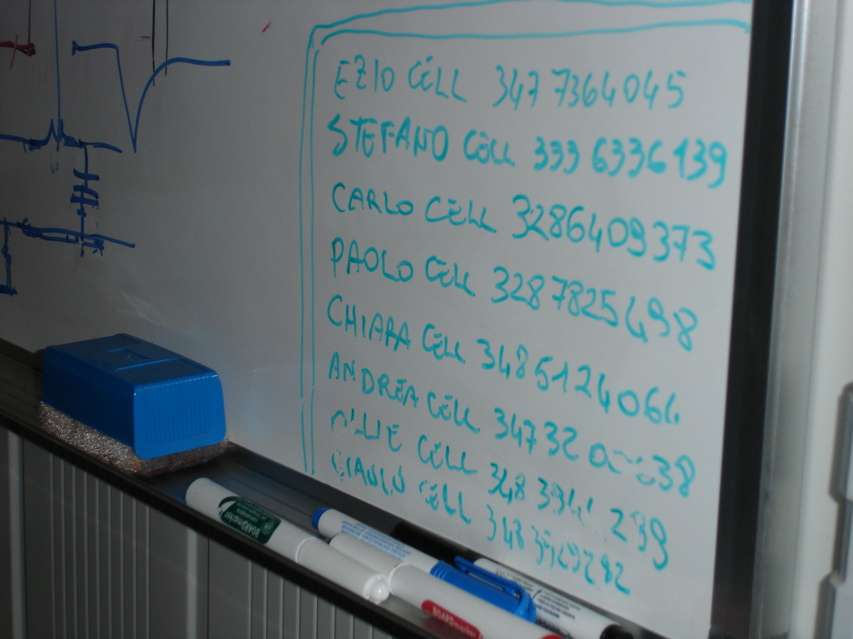 EZIO CELL 347 7364045
STEFANO CELL 333 6336139
CARLO CELL 3286409373
PAOLO CELL 328 7825498
CHIARA CELL 348 5124064
ANDREA CELL 34732
CELL 348
CELL 348
BOARDmarker
BOARDmarker